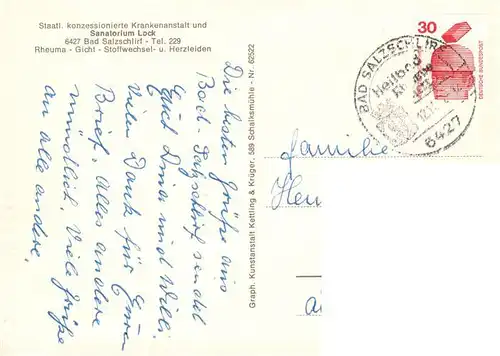 Staatl. konzessionierte Krankenanstalt und
Sanatorium Lock
6427 Bad Salzschlirf - Tel. 229
Rheuma - Gicht - Stoffwechsel- u. Herzleiden
Die besten Grüße aus
Bad-Salzschlirf sendet
Euch Oma und Willi.
Vielen Dank für Euren
Brief. Alles andere
mündlich. Viele Grüße
an alle andere.
Graph. Kunstanstalt Kettling & Krüger, 589 Schalksmühle - Nr. 62522
30
DEUTSCHE BUNDESPOST
BAD SALZSCHLIRF
Heilbad
6427
Familie